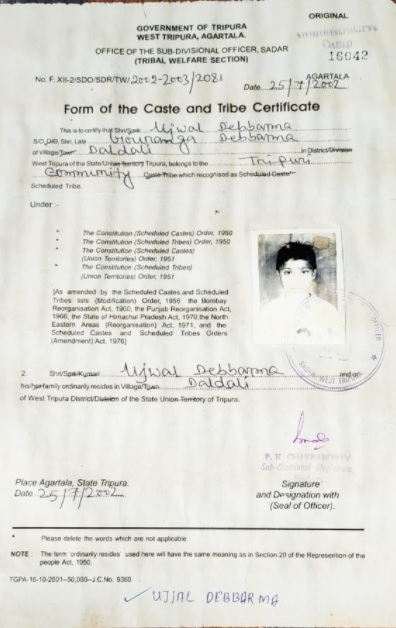 ORIGINAL
GOVERNMENT OF TRIPURA
WEST TRIPURA, AGARTALA.
OFFICE OF THE SUB-DIVISIONAL OFFICER, SADAR
(TRIBAL WELFARE SECTION)
Camp
16042
No. F. XII-2/SDO/SDR/TW/ 2002-2003/2081
AGARTALA
Date 25/7/2002
Form of the Caste and Tribe Certificate
This is to certify that Shri/Smti Ujwal Debbarma
S/O, D/O, Shri, Late Gouranga Debbarma
of Village/Town Daldali in District/Division
West Tripura of the State/Union Territory Tripura, belongs to the Tripuri
Community Caste Tribe which recognised as Scheduled Caste/
Scheduled Tribe.
Under :-
* The Constitution (Scheduled Castes) Order, 1950
* The Constitution (Scheduled Tribes) Order, 1950
* The Constitution (Scheduled Castes)
(Union Territories) Order, 1951
* The Constitution (Scheduled Tribes)
(Union Territories) Order, 1951
[As amended by the Scheduled Castes and Scheduled
Tribes lists (Modification) Order, 1956, the Bombay
Reorganisation Act, 1960, the Punjab Reorganisation Act,
1966, the State of Himachal Pradesh Act, 1970,the North
Eastern Areas (Reorganisation) Act, 1971, and the
Scheduled Castes and Scheduled Tribes Orders
(Amendment) Act, 1976]
2. Shri/Smti/Kumari Ujwal Debbarma and/or
his/her family ordinarily resides in Village/Town Daldali
of West Tripura District/Division of the State Union Territory of Tripura.
SADAR WEST TRIPURA
P. K. CHAKRABORTY
Sub-Divisional Magistrate,
Place Agartala, State Tripura.
Date 25/7/2002
Signature
and Designation with
(Seal of Officer).
* Please delete the words which are not applicable.
NOTE : The term 'ordinarily resides' used here will have the same meaning as in Section 20 of the Representation of the
people Act, 1950.
TGPA-16-10-2001-50,000-J.C.No. 9360
✓ UJJAL DEBBARMA